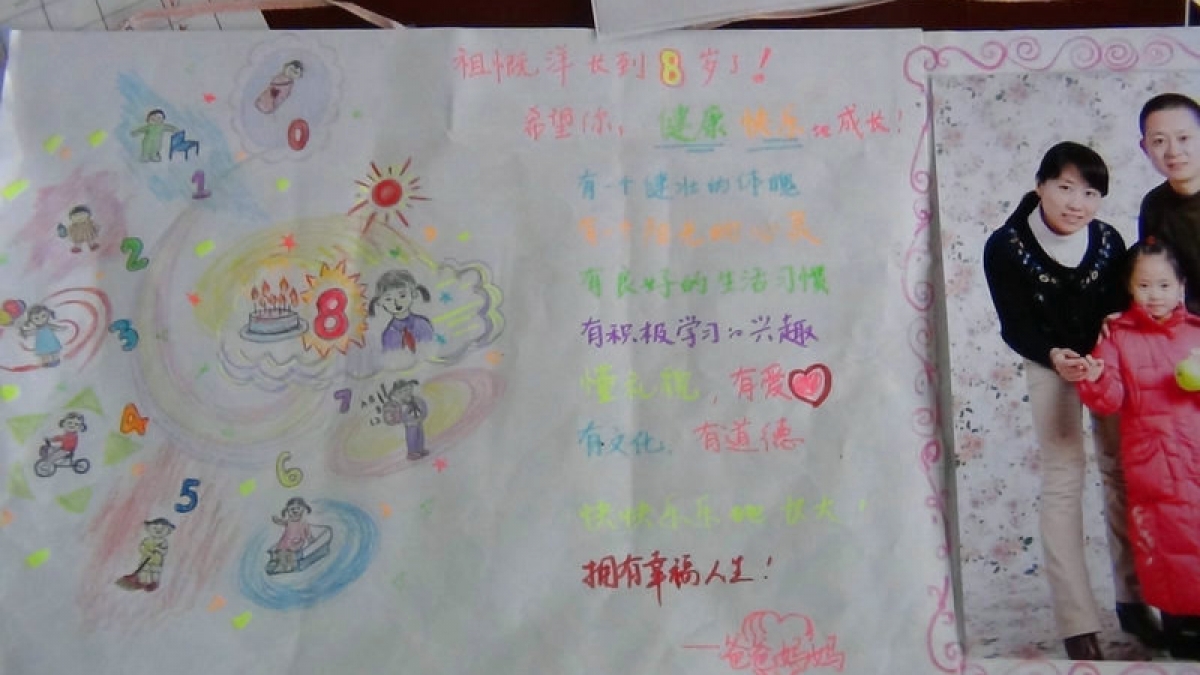 祖慨洋长到8岁了!
希望你,健康快乐地成长!
有一个健壮的体魄
有一个阳光的心灵
有良好的生活习惯
有积极学习的兴趣
懂礼貌,有爱
有文化,有道德
快快乐乐地长大!
拥有幸福人生!
——爸爸妈妈
0
1
2
3
4
5
6
7
8